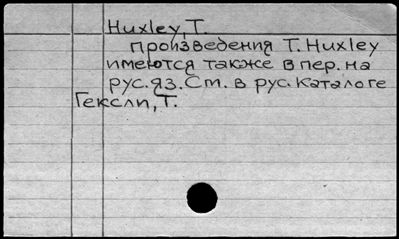 Huxley, T.
произведения T. Huxley
имеются также в пер. на
рус. яз. См. в рус. каталоге
Гексли, Т.